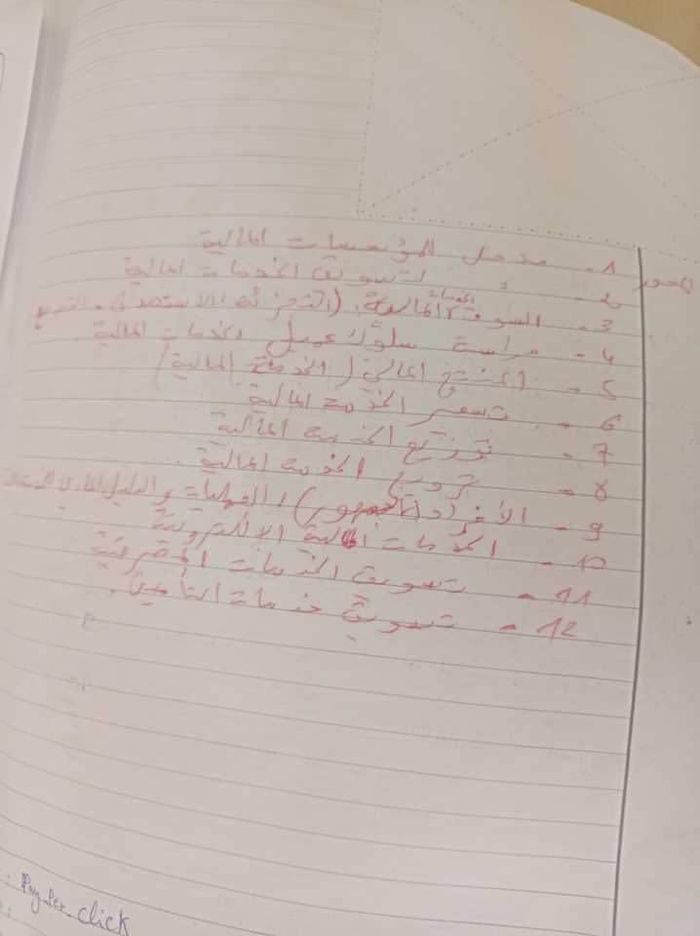 محور 1- مدخل المؤسسات المالية
2- " لتسويق الخدمات المالية
3- السوق الخدمات المالية. (التجزئة، الاستهداف،
4- دراسة سلوك عميل الخدمات المالية.
5- المنتج المالي (الخدمة المالية)
6- تسعير الخدمة المالية
7- توزيع الخدمة المالية
8- ترويج الخدمة المالية.
9- الأفراد (الجمهور)، العمليات والدليل المادي
10- الخدمات المالية الالكترونية
11- تسويق الخدمات المصرفية
12- تسويق خدمات التأمين.
Pay. Per. click